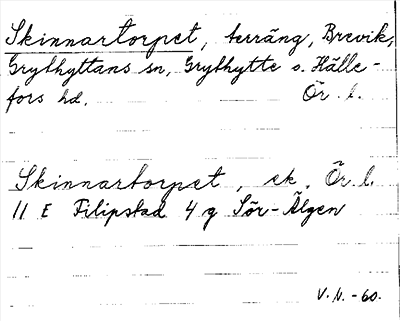 Skinnartorpet, terräng, Brevik,
Grythyttans sn, Grythytte o. Hälle-
fors hd. Ör. l.
Skinnartorpet, ek. Ör. l.
11 E Filipstad 4 g Sör-Älgen
V. N. -60.